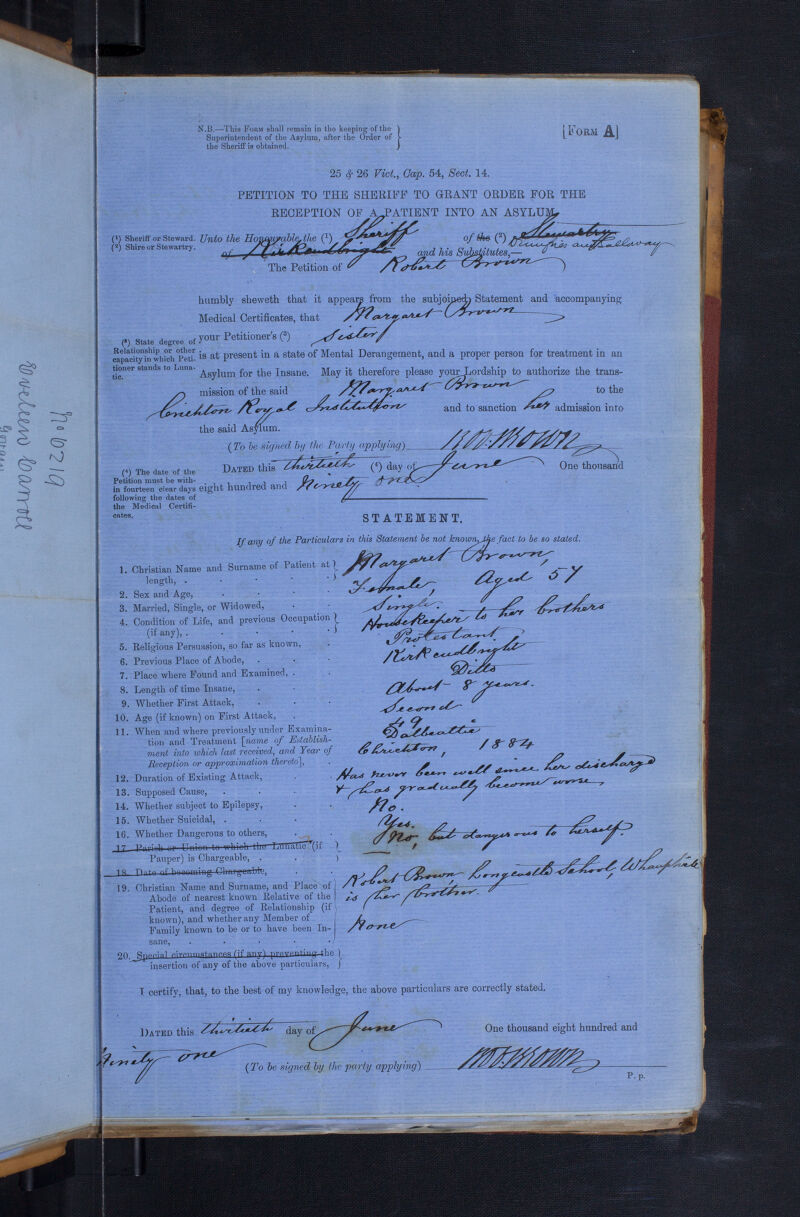 N.B.—This Form shall remain in the keeping of the
Superintendent of the Asylum, after the Order of
the Sheriff is obtained.
[Form A]
25 & 26 Vict., Cap. 54, Sect. 14.
PETITION TO THE SHERIFF TO GRANT ORDER FOR THE
RECEPTION OF A PATIENT INTO AN ASYLUM.
(1) Sheriff or Steward.
(2) Shire or Stewartry.
Unto the Honourable the (1) Sheriff of the (2) Stewartry
of Kirkcudbright Dumfries and Galloway and his Substitutes,—
The Petition of Robert Brown
humbly sheweth that it appears from the subjoined Statement and accompanying
Medical Certificates, that Margaret Brown
(3) State degree of Relationship or other capacity in which Petitioner stands to Lunatic.
your Petitioner's (3) Sister
is at present in a state of Mental Derangement, and a proper person for treatment in an
Asylum for the Insane. May it therefore please your Lordship to authorize the trans-
mission of the said Margaret Brown to the
Crichton Royal Institution and to sanction her admission into
the said Asylum.
(To be signed by the Party applying) Rob. Brown
(4) The date of the Petition must be within fourteen clear days following the dates of the Medical Certificates.
Dated this thirtieth (4) day of June One thousand
eight hundred and Ninety one.
STATEMENT.
If any of the Particulars in this Statement be not known, the fact to be so stated.
1. Christian Name and Surname of Patient at length, . Margaret Brown,
2. Sex and Age, Female, Aged 57
3. Married, Single, or Widowed, Single.
4. Condition of Life, and previous Occupation (if any), . Housekeeper to her brothers
5. Religious Persuasion, so far as known, Protestant
6. Previous Place of Abode, Kirkcudbright
7. Place where Found and Examined, . Ditto
8. Length of time Insane, About 8 years.
9. Whether First Attack, Second
10. Age (if known) on First Attack, 49
11. When and where previously under Examina- Dalbeattie
tion and Treatment [name of Establish-
ment into which last received, and Year of Chrichton, 1884
Reception or approximation thereto],
12. Duration of Existing Attack, Has never been well since her discharge
13. Supposed Cause, . & has gradually become worse
14. Whether subject to Epilepsy, No.
15. Whether Suicidal, . Yes.
16. Whether Dangerous to others, No, but dangerous to herself.
17. Parish or Union to which the Lunatic (if
Pauper) is Chargeable, .
18. Date of becoming Chargeable,
19. Christian Name and Surname, and Place of Robert Brown Longcastle School, Whauphill
Abode of nearest known Relative of the is her brother.
Patient, and degree of Relationship (if
known), and whether any Member of None
Family known to be or to have been In-
sane,
20. Special circumstances (if any) preventing the
insertion of any of the above particulars,
I certify, that, to the best of my knowledge, the above particulars are correctly stated.
Dated this thirtieth day of June One thousand eight hundred and
Ninety one
(To be signed by the party applying) Rob. Brown
P. p.
no 6219
Carroll